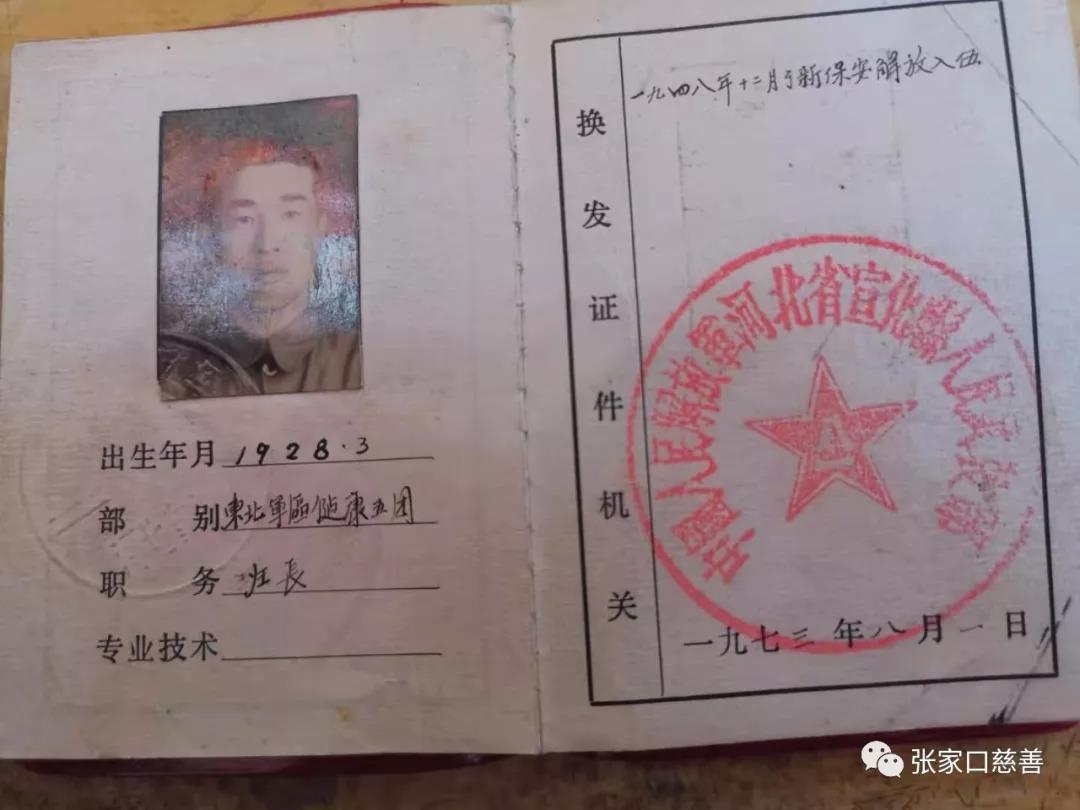 出生年月 1928.3
部 别 東北軍區健康五团
职 务 班長
专业技术
换发证件机关
一九四八年十二月于新保安解放入伍
中国人民解放軍河北省宣化縣人民武装部
一九七三年八月一日
张家口慈善